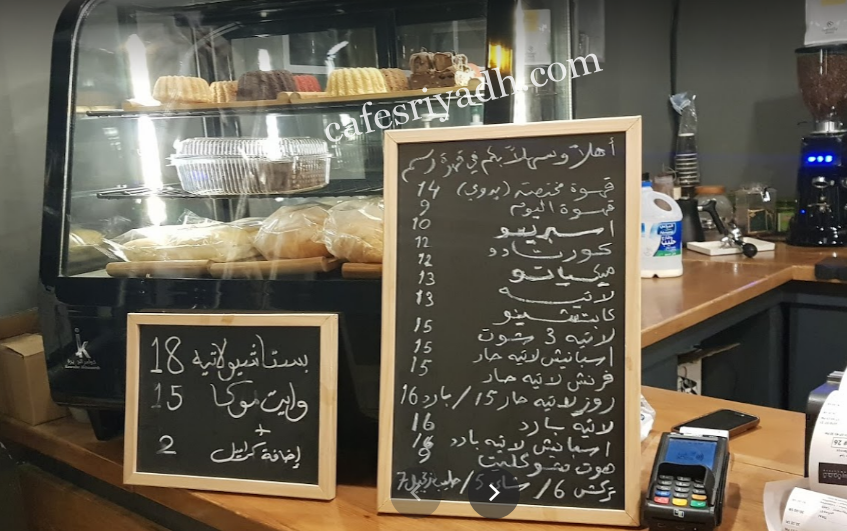 cafesriyadh.com
أهلا وسهلا بكم في قهوة رسم
قهوة مختصة (يدوي) 14
قهوة اليوم 9
اسبريسو 10
كورتادو 12
ميكياتو 12
لاتيه 13
كابتشينو 13
لاتيه 3 شوت 15
اسبانيش لاتيه حار 15
فرنش لاتيه حار 15
روز لاتيه حار 15 / بارد 16
لاتيه بارد 16
اسبانيش لاتيه بارد 16
هوت شوكليت 9
تركش 6 / شاي 5 / حليب زنجبيل 7
بستاشيو لاتيه 18
وايت موكا 15
+
إضافة كراميل 2